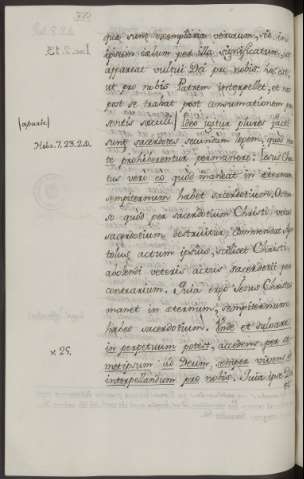 que sunt exemplaria verorum, sic in
ipsum cælum per illa significatum, ut
appareat vultui Dei pro nobis: hoc est,
ut pro nobis Patrem interpellet, et nos
post se trahat post consummationem
sentis sæculi. Ideo isti plures facti
sunt sacerdotes secundum legem, quod mor-
te prohiberentur permanere: Iesus Chris-
tus vero eo quod maneat in æternum
sempiternum habet sacerdotium.
quod per sacerdotium Christi, vetus
sacerdotium destruitur, commendat Apo-
stolus actum ipsius, scilicet Christi,
veteris actus sacerdotii per
contrarium. Quia ergo Iesus Christus
manet in æternum, sempiternum
habet sacerdotium. Unde et salvare
in perpetuum potest, accedens per se-
metipsum ad Deum, semper vivens ad
interpellandum pro nobis. Quia ipse
Hebr. 7. 23. 24.
v. 25.